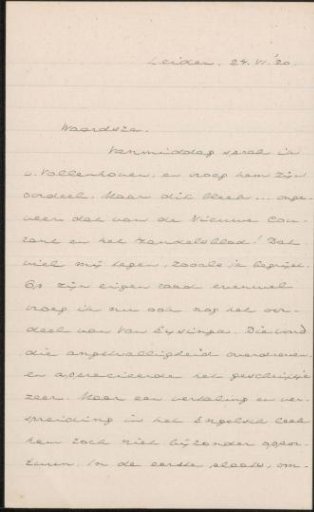 Leiden. 24.VI.'20.
Waarde
Vanmiddag sprak ik
v. Vollenhoven, en vroeg hem zijn
oordeel. Maar dit bleek ... onge-
veer dat van de Nieuwe Cou-
rant en het Handelsblad! Dat
viel mij tegen, zooals je begrijpt.
Op zijn eigen raad evenwel
vroeg ik nu ook nog het oor-
deel van Van Eysinga. Die vond
die angstvalligheid overdreven
en apprecieerde het geschriftje
zeer. Maar een vertaling en ver-
spreiding in het Engelsch leek
hem toch niet bijzonder oppor-
tuun. In de eerste plaats, om-